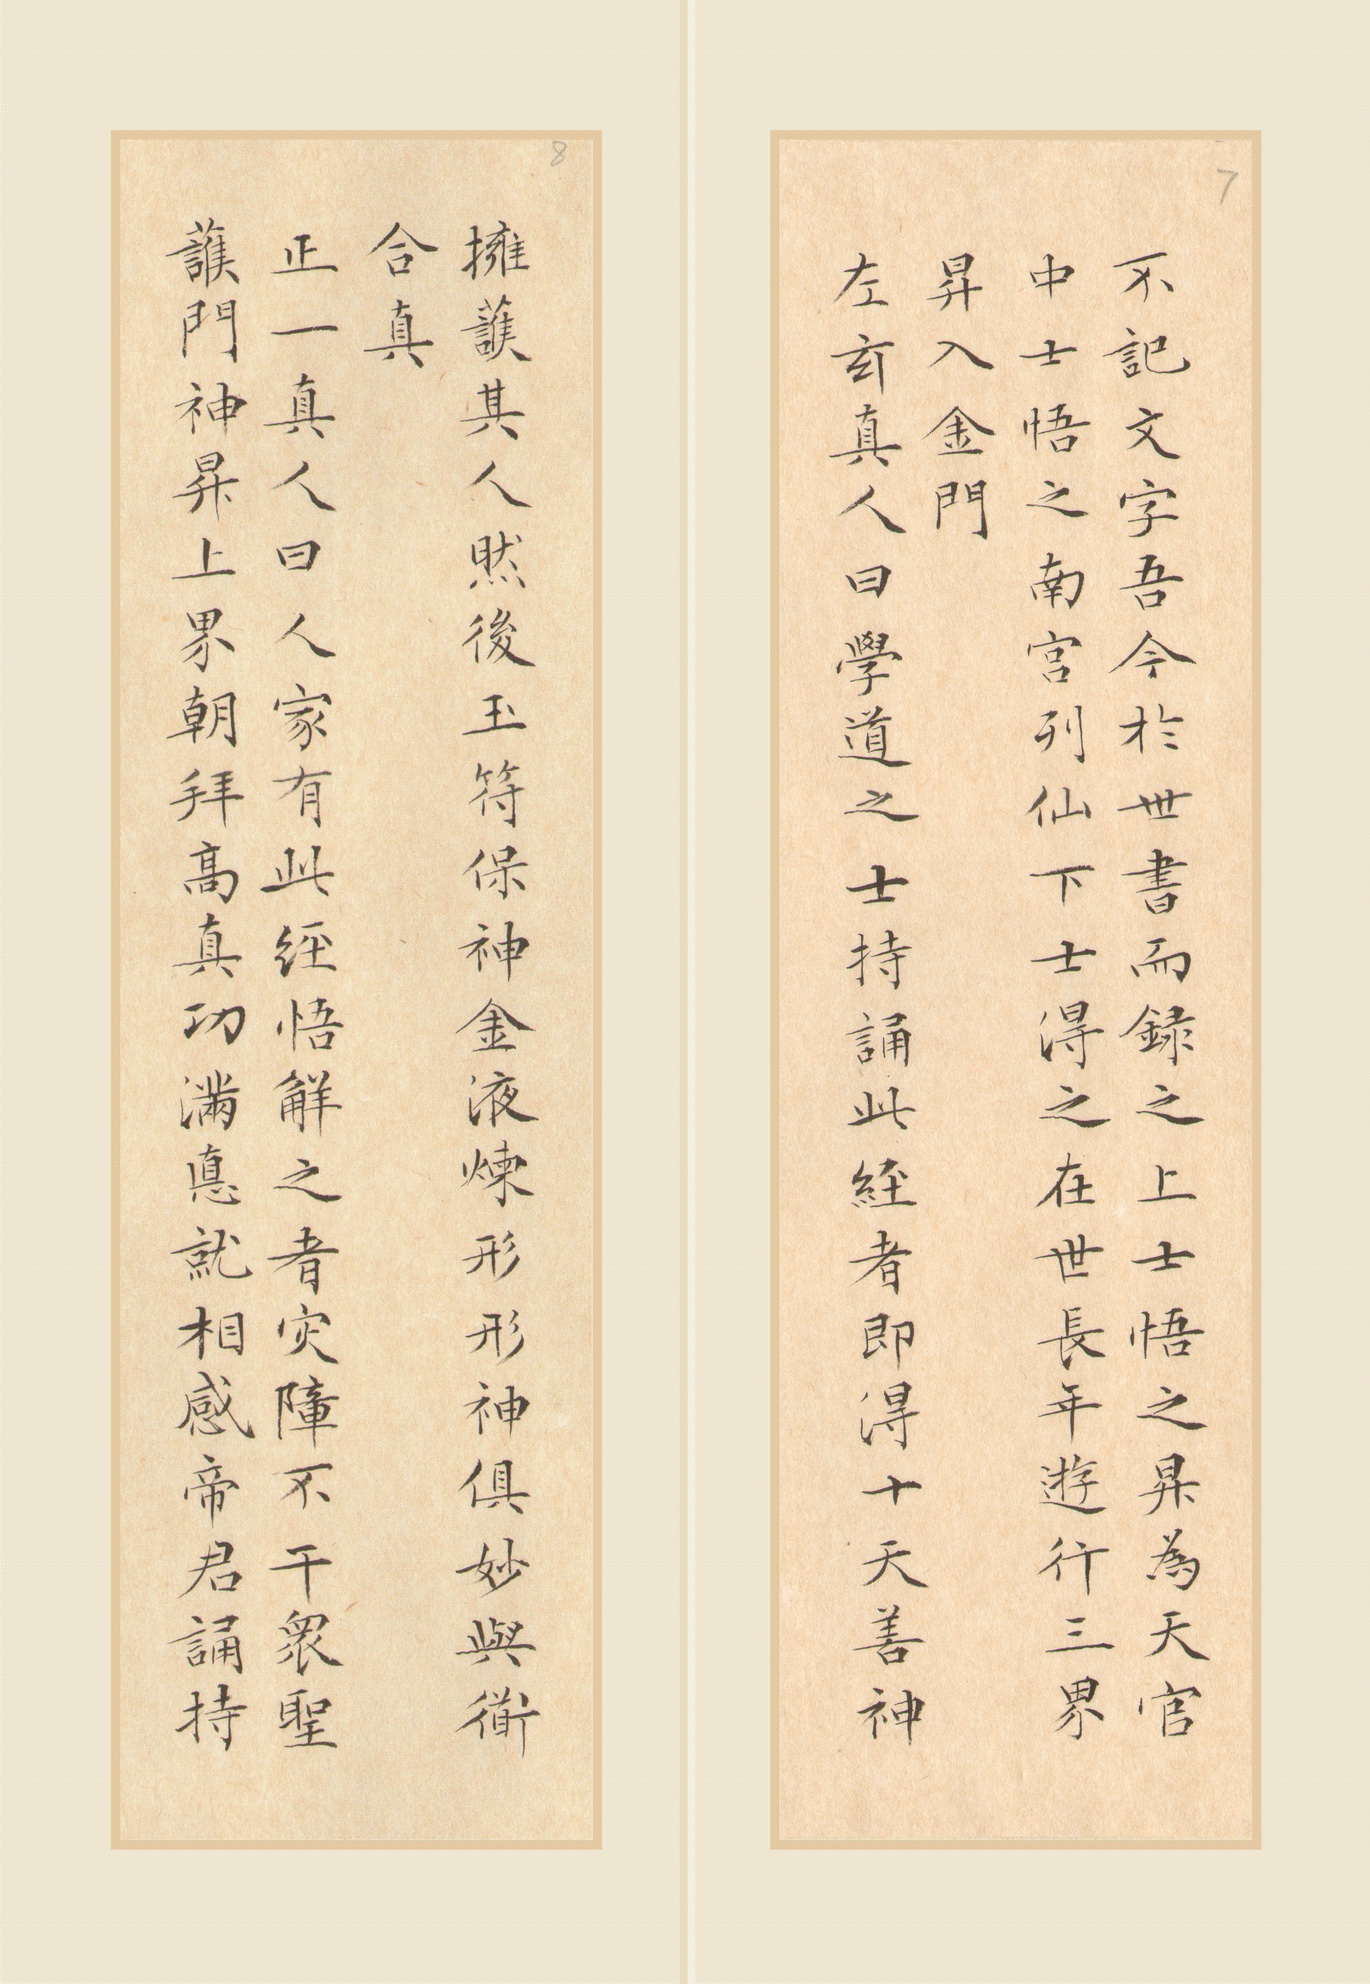 7
不記文字吾今於世書而録之上士悟之昇為天官
中士悟之南宮列仙下士得之在世長年遊行三界
昇入金門
左玄真人曰學道之士持誦此經者即得十天善神
8
擁護其人然後玉符保神金液煉形形神俱妙與衜
合真
正一真人曰人家有此經悟解之者灾障不干衆聖
護門神昇上界朝拜高真功滿悳就相感帝君誦持